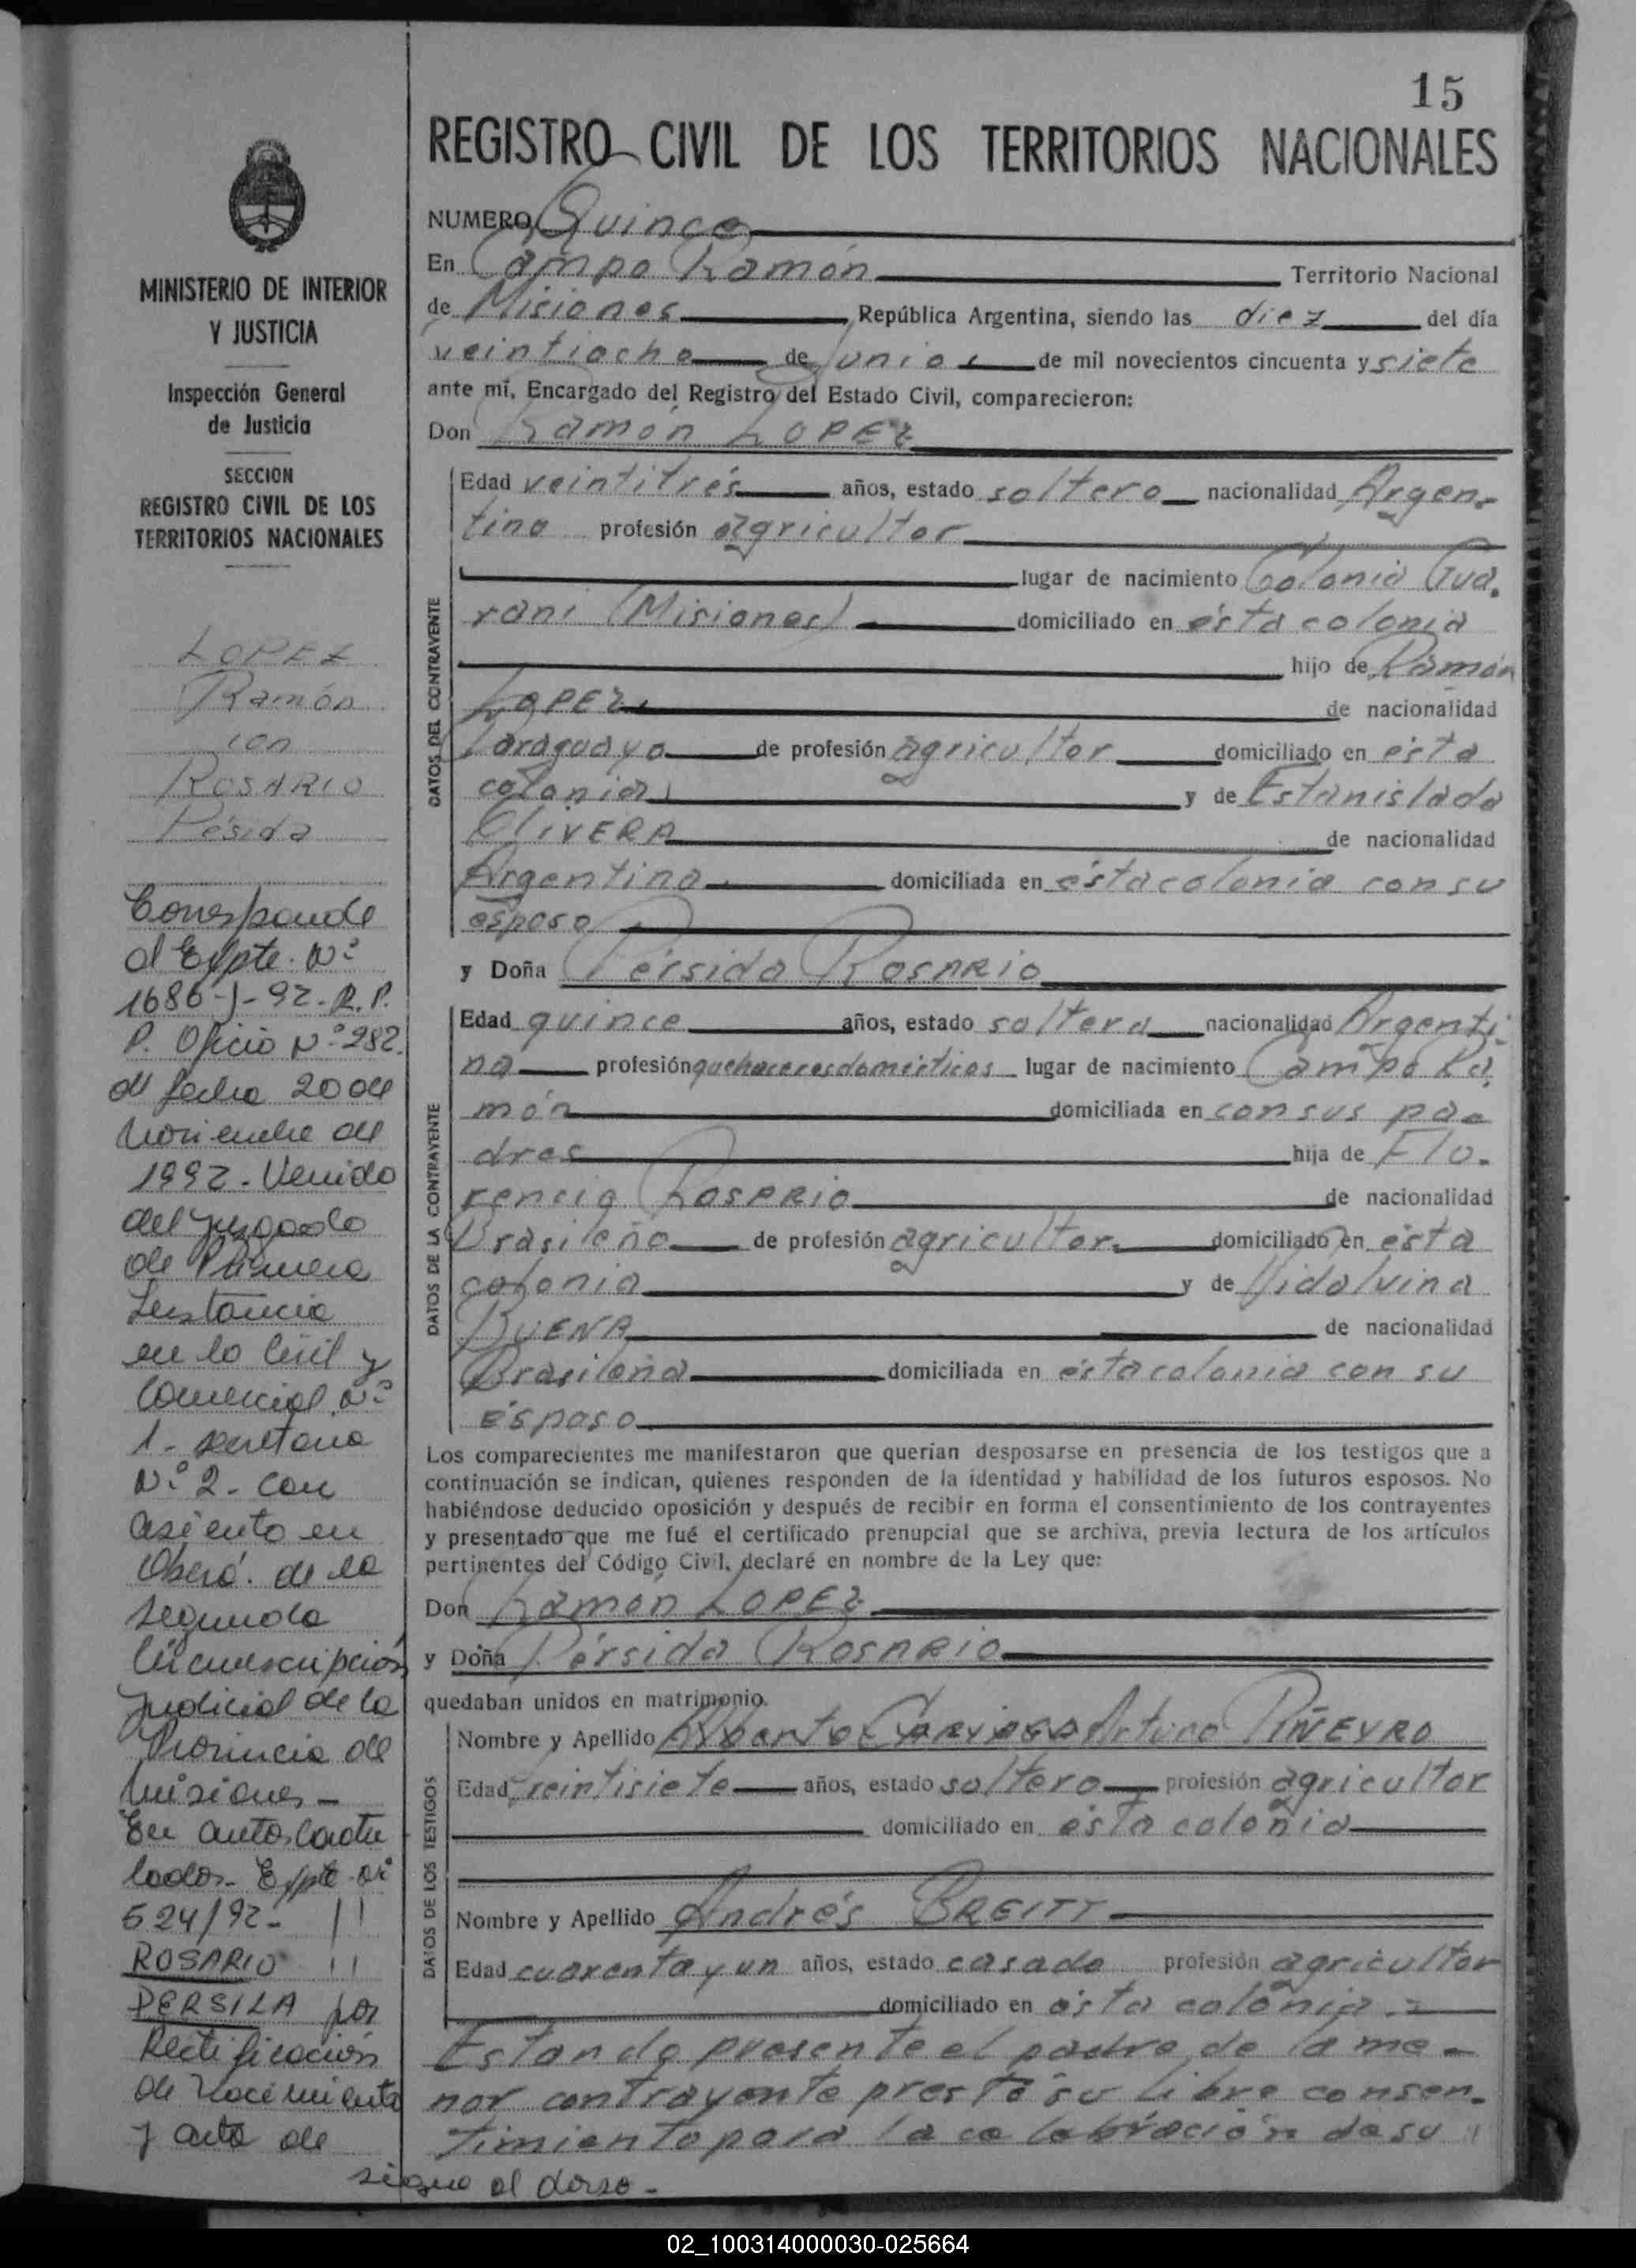 15
REGISTRO CIVIL DE LOS TERRITORIOS NACIONALES
MINISTERIO DE INTERIOR
Y JUSTICIA
Inspección General
de Justicia
SECCION
REGISTRO CIVIL DE LOS
TERRITORIOS NACIONALES
LOPEZ
Ramón
con
ROSARIO
Pérsida
Corresponde
al Expte. Nº
1686-J-92-R.P.
P. Oficio Nº 282.
de fecha 20 de
Noviembre de
1992 - Venido
del Juzgado
de Primera
Instancia
en lo Civil y
Comercial Nº
1 - secretaria
Nº 2 - con
asiento en
Oberá. de la
segunda
Circunscripción
Judicial de la
Provincia de
Misiones -
En autos caratu
lados - Expte Nº
524/92 - "
ROSARIO "
PERSILA por
Rectificación
de Nacimiento
y acta de
sigue al dorso -
NUMERO Quince
En Campo Ramón Territorio Nacional
de Misiones República Argentina, siendo las diez del día
veintiocho de Junio de mil novecientos cincuenta y siete
ante mí, Encargado del Registro del Estado Civil, comparecieron:
Don Ramón LOPEZ
DATOS DEL CONTRAYENTE
Edad veintitrés años, estado soltero nacionalidad Argen-
tino profesión agricultor
lugar de nacimiento Colonia Gua.
rani (Misiones) domiciliado en ésta colonia
hijo de Ramón
LOPEZ de nacionalidad
Paraguayo de profesión agricultor domiciliado en ésta
colonia y de Estanislada
OliVERA de nacionalidad
Argentina domiciliada en ésta colonia con su
esposo
y Doña Pérsida ROSARIO
DATOS DE LA CONTRAYENTE
Edad quince años, estado soltera nacionalidad Argenti-
na profesión quehaceres domésticos lugar de nacimiento Campo Ra
món domiciliada en con sus pa-
dres hija de Flo-
rencio ROSARIO de nacionalidad
Brasileño de profesión agricultor domiciliado en ésta
colonia y de Vidalvina
BUENA de nacionalidad
Brasileña domiciliada en ésta colonia con su
esposo
Los comparecientes me manifestaron que querían desposarse en presencia de los testigos que a
continuación se indican, quienes responden de la identidad y habilidad de los futuros esposos. No
habiéndose deducido oposición y después de recibir en forma el consentimiento de los contrayentes
y presentado que me fué el certificado prenupcial que se archiva, previa lectura de los artículos
pertinentes del Código Civil, declaré en nombre de la Ley que:
Don Ramón LOPEZ
y Doña Pérsida ROSARIO
quedaban unidos en matrimonio.
DATOS DE LOS TESTIGOS
Nombre y Apellido Arturo PIÑEYRO
Edad veintisiete años, estado soltero profesión agricultor
domiciliado en ésta colonia
Nombre y Apellido Andrés BREITT
Edad cuarenta y un años, estado casado profesión agricultor
domiciliado en ésta colonia.=
Estando presente el padre de la me-
nor contrayente prestó su libre consen-
timiento para la celebración de su "
02_100314000030-025664